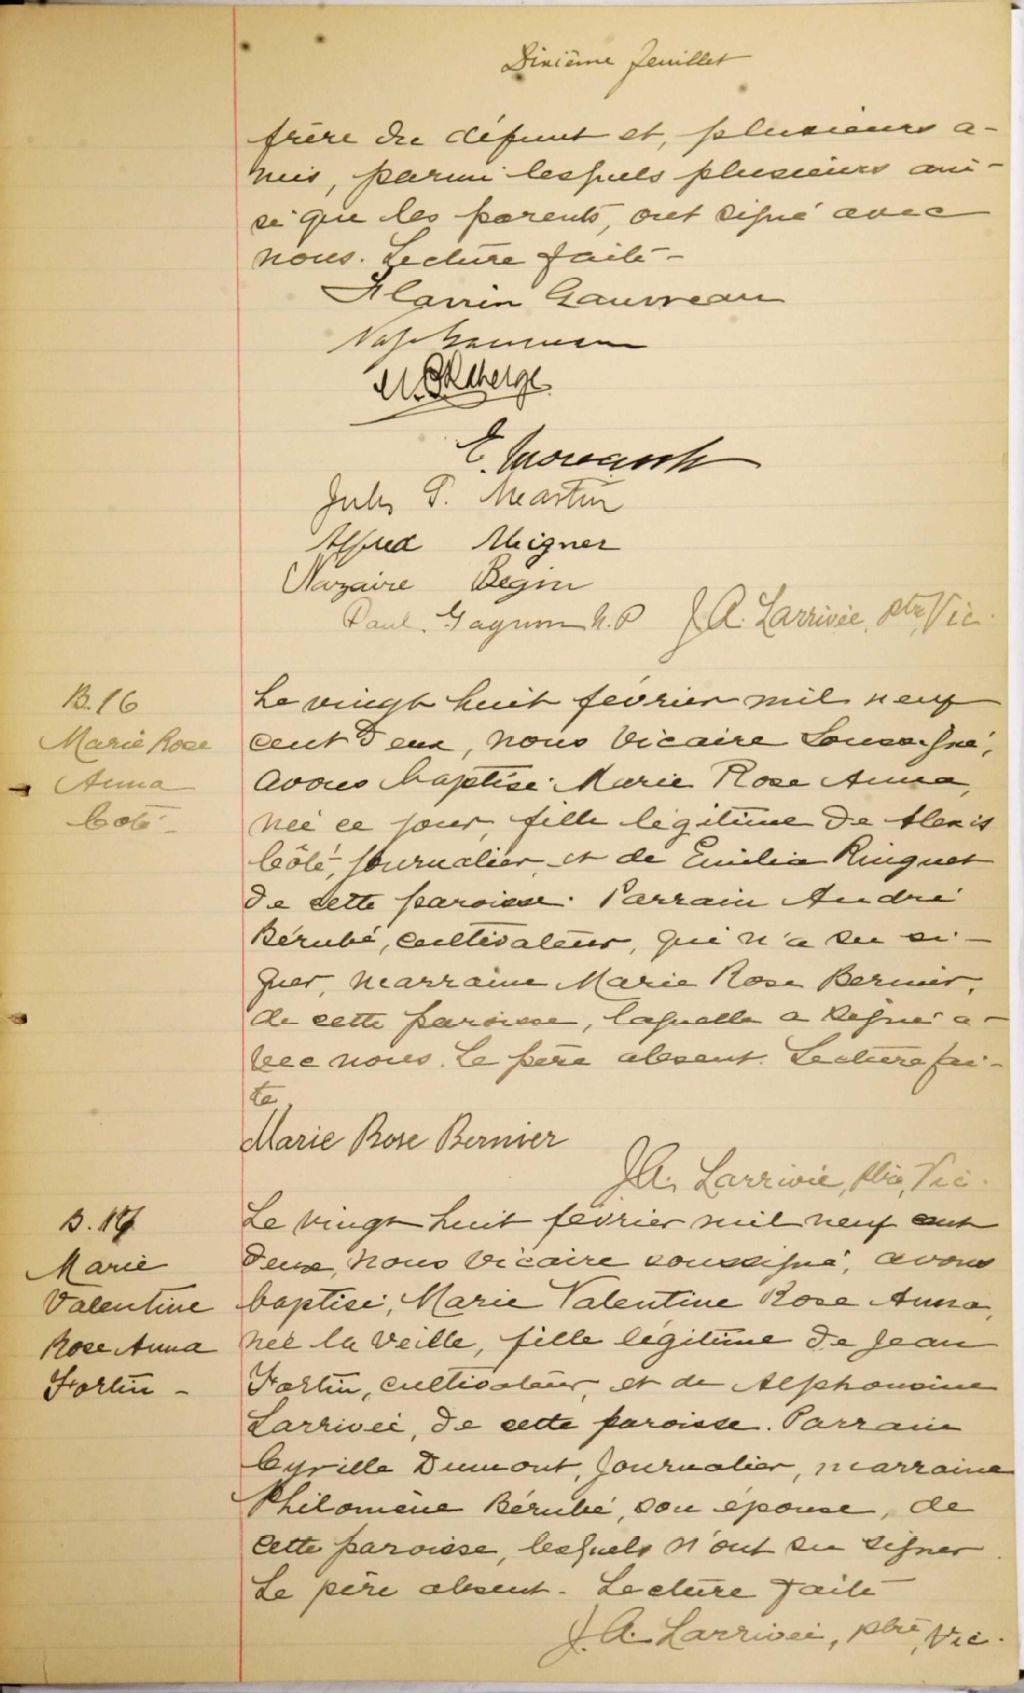 Dixième feuillet
frère du défunt et, plusieurs a-
mis, parmi lesquels plusieurs ain-
si que les parents, ont signé avec
nous. Lecture faite -
Flavien Gauvreau
Nap Gauvreau
Jules P. Martin
Alfred Migner
Nazaire Begin
Paul Gagnon N.P J.A. Larrivée, ptre, Vic.
B.16
Marie Rose
Anna
Coté -
Le vingt huit février mil neuf
cent deux, nous Vicaire Soussigné,
avons baptisé Marie Rose Anna,
née ce jour, fille légitime de Alexis
Côté, journalier, et de Emilia Ringuet
de cette paroisse. Parrain André
Bérubé, cultivateur, qui n'a su si-
gner, marraine Marie Rose Bernier,
de cette paroisse, laquelle a signé a-
vec nous. Le père absent. Lecture fai-
te.
Marie Rose Bernier
J.A. Larrivée, ptre, Vic.
B.17
Marie
Valentine
Rose Anna
Fortin -
Le vingt huit février mil neuf cent
deux, nous Vicaire soussigné, avons
baptisé, Marie Valentine Rose Anna,
née la veille, fille légitime de Jean
Fortin, cultivateur, et de Alphonsine
Larrivée, de cette paroisse. Parrain
Cyrille Dumont, journalier, marraine
Philomène Bérubé, son épouse, de
cette paroisse, lesquels n'ont su signer.
Le père absent - Lecture faite
J.A. Larrivée, ptre, Vic.